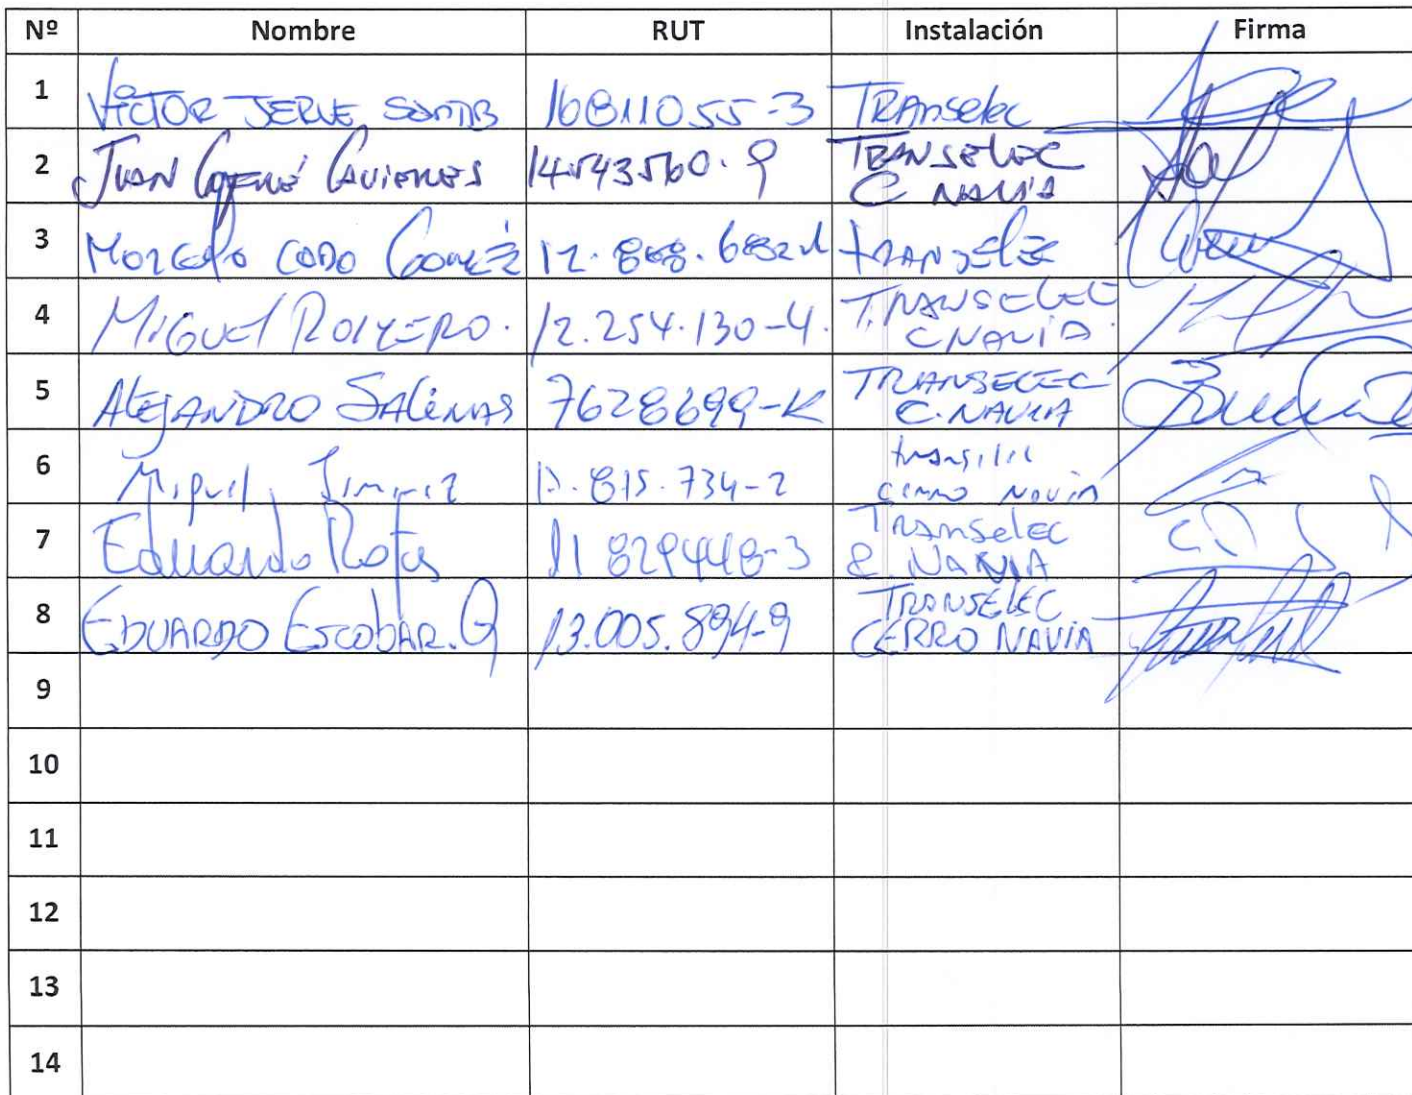 Nº Nombre RUT Instalación Firma
1 VICTOR JERVE 16811055-3 TRANSelec
2 JUAN 14.543.560-9 TRANSELEC
C NAVIA
3 CODO 12. TRANSELEC
4 MIGUEL ROMERO. 12.254.130-4. TRANSELEC
C NAVIA
5 ALEJANDRO SALINAS 7628699-K TRANSELEC
C. NAVIA
6 Miguel
Cerro Navia
7 Eduardo Rojas 11 829448-3 Transelec
C. NAVIA
8 EDUARDO ESCOBAR. G 13.005.894-9 TRANSELEC
CERRO NAVIA
9
10
11
12
13
14